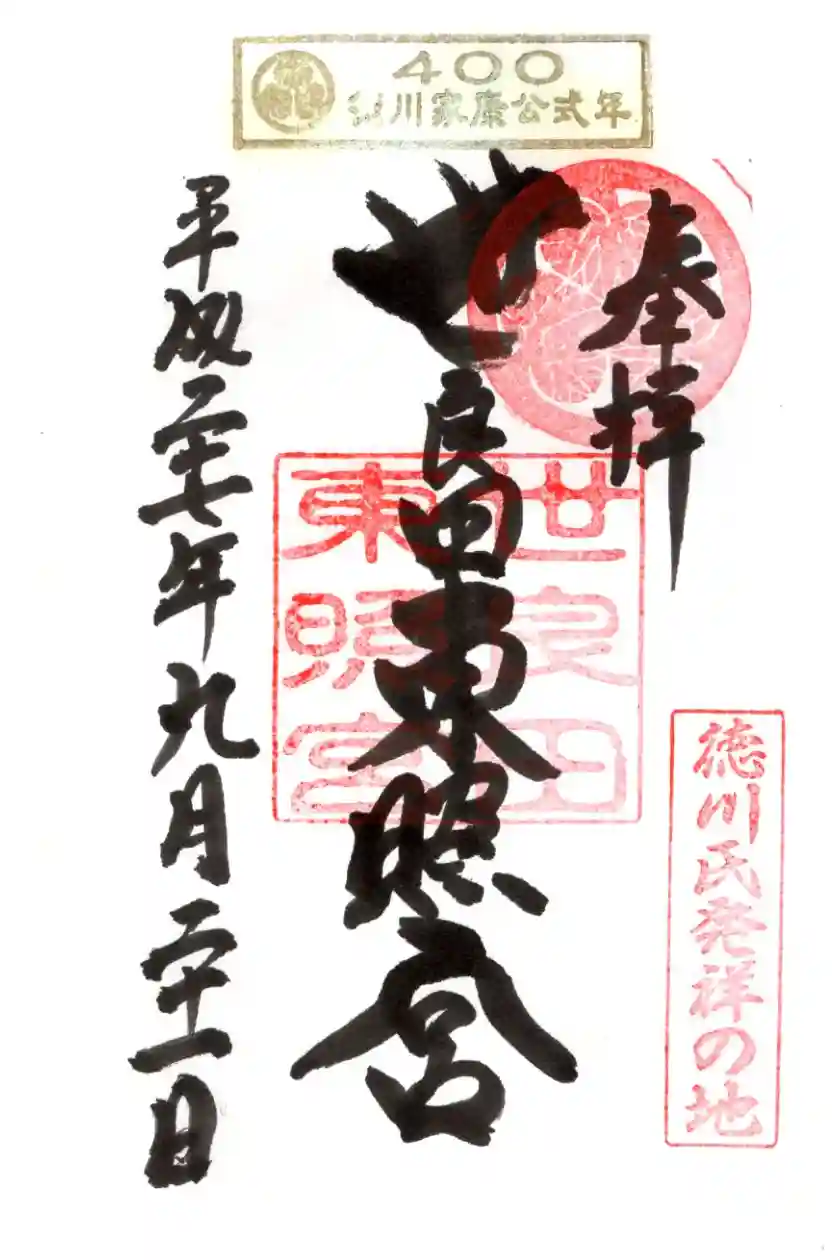 400
徳川家康公式年
奉拝
徳川氏発祥の地
世良田東照宮
世良田
東照宮
平成二十七年九月二十一日